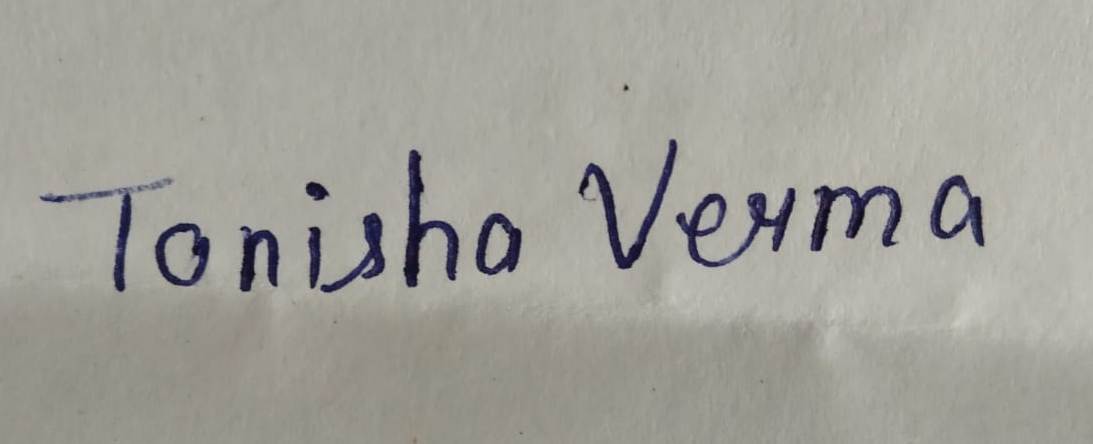 Tanisha Verma